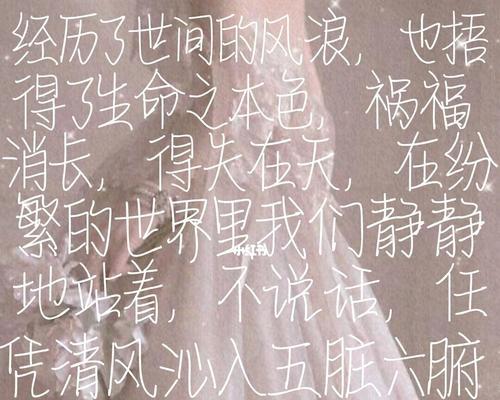 经历了世间的风浪，也捂
得了生命之本色，祸福
消长，得失在天，在纷
繁的世界里我们静静
小红书
地站着，不说话，任
凭清风沁入五脏六腑